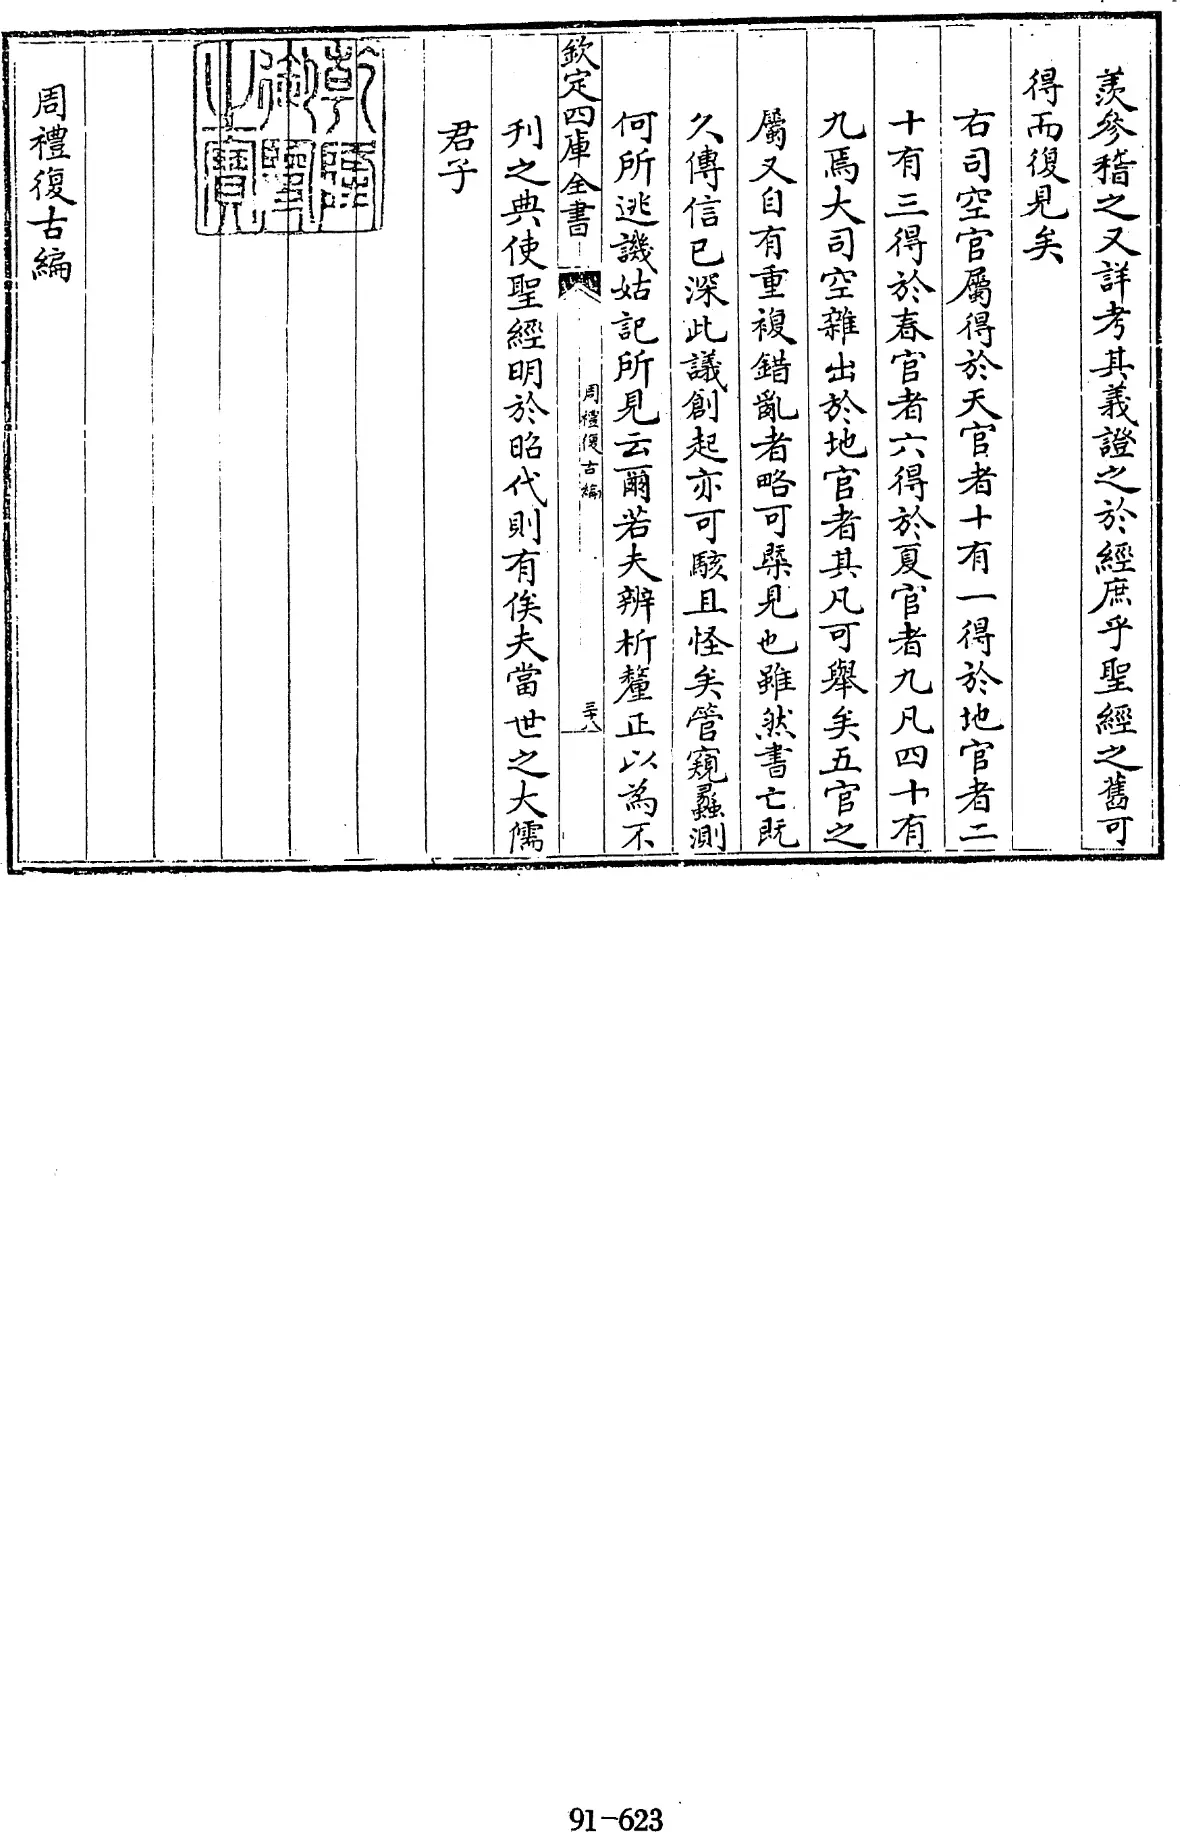 羨參稽之又詳考其義證之於經庶乎聖經之舊可
得而復見矣
右司空官屬得於天官者十有一得於地官者二
十有三得於春官者六得於夏官者九凡四十有
九焉大司空雜出於地官者其凡可舉矣五官之
屬又自有重複錯亂者略可槩見也雖然書亡既
久傳信已深此議創起亦可駭且怪矣管窺蠡測
何所逃譏姑記所見云爾若夫辨析釐正以為不
欽定四庫全書
周禮復古編
三十八
刊之典使聖經明於昭代則有俟夫當世之大儒
君子
乾隆御覽之寶
周禮復古編
91-623